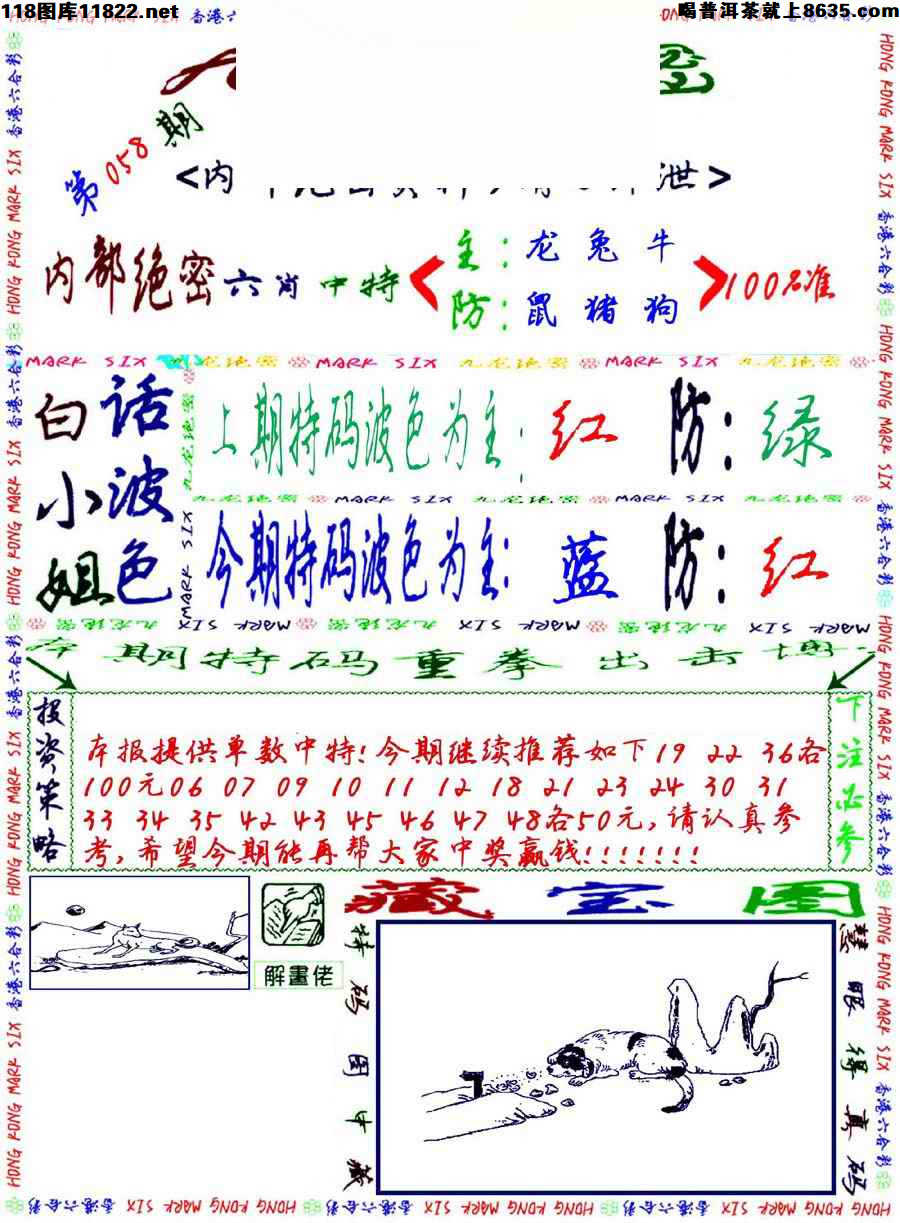 118图库11822.net
喝普洱茶就上8635.com
第058期
<内
泄>
内部绝密六肖中特
主:龙兔牛
防:鼠猪狗
100%准
MARK SIX 九龙绝密 MARK SIX 九龙绝密 MARK SIX 九龙绝密
白话
小波
姐色
上期特码波色为主:红 防:绿
九龙绝密 MARK SIX 九龙绝密 MARK SIX 九龙绝密
今期特码波色为主:蓝 防:红
MARK SIX 九龙绝密 MARK SIX 九龙绝密 MARK SIX 九龙绝密
本期特码重拳出击博
投资策略
本报提供单数中特!今期继续推荐如下19 22 36各
100元06 07 09 10 11 12 18 21 23 24 30 31
33 34 35 42 43 45 46 47 48各50元,请认真参
考,希望今期能再帮大家中奖赢钱!!!!!!!
下注必参
解畫佬
藏宝图
特码图中藏
慧眼得真码
HONG KONG MARK SIX 香港六合彩